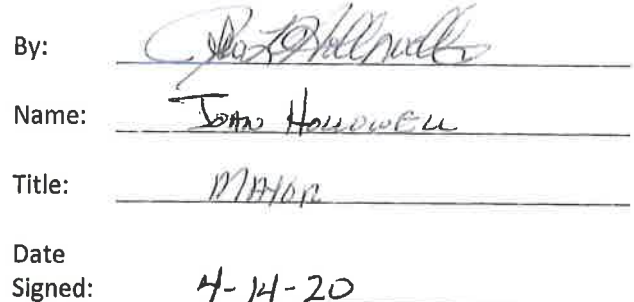 By:
Name: John Hollowell
Title: Mayor
Date
Signed: 4-14-20